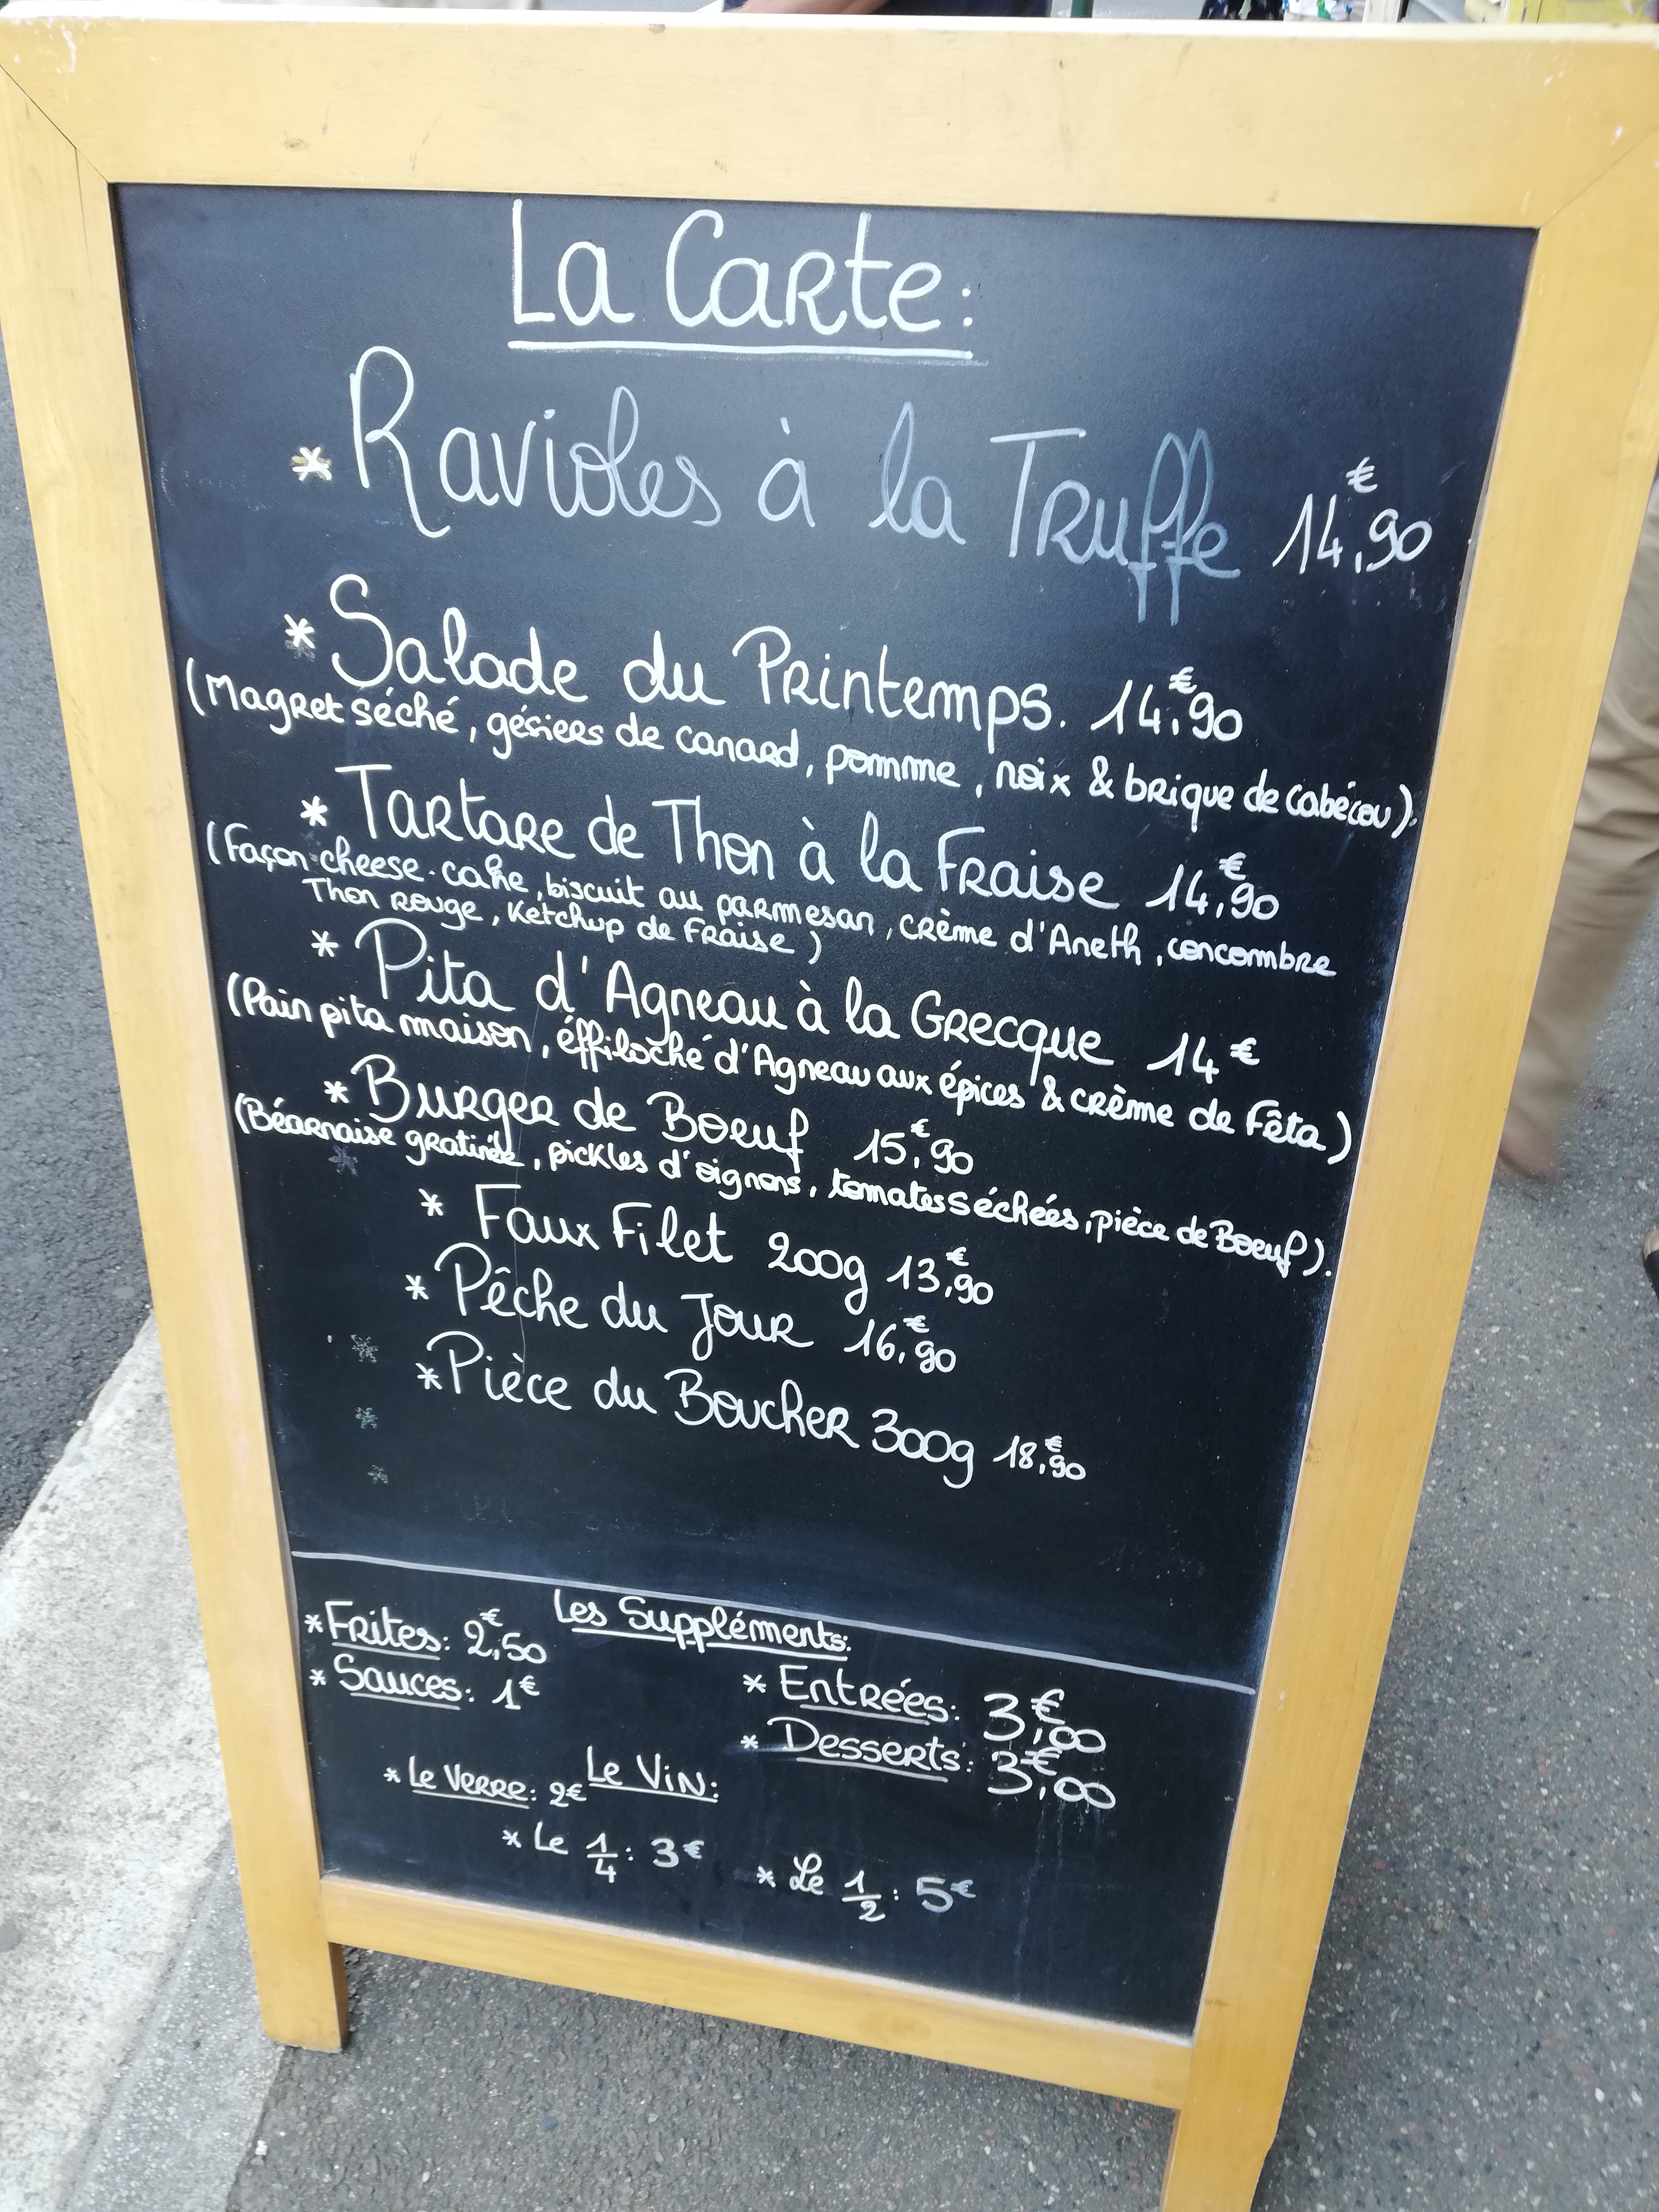 La Carte:
* Ravioles à la Truffe 14,€90
* Salade du Printemps. 14,€90
(Magret séché, gésiers de canard, pomme, noix & brique de cabécou).
* Tartare de Thon à la Fraise 14,€90
(Façon cheese-cake, biscuit au parmesan, crème d'Aneth, concombre
Thon rouge, Ketchup de Fraise)
* Pita d'Agneau à la Grecque 14€
(Pain pita maison, éffiloché d'Agneau aux épices & crème de Fêta)
* Burger de Boeuf 15,€90
(Béarnaise gratinée, pickles d'oignons, tomates séchées, pièce de Boeuf).
* Faux Filet 200g 13,€90
* Pêche du Jour 16,€90
* Pièce du Boucher 300g 18,€90
Les Suppléments:
* Frites: 2,€50
* Sauces: 1€
* Entrées: 3,€00
* Desserts: 3,€00
Le Vin:
* Le Verre: 2€
* Le 1/4: 3€
* Le 1/2: 5€